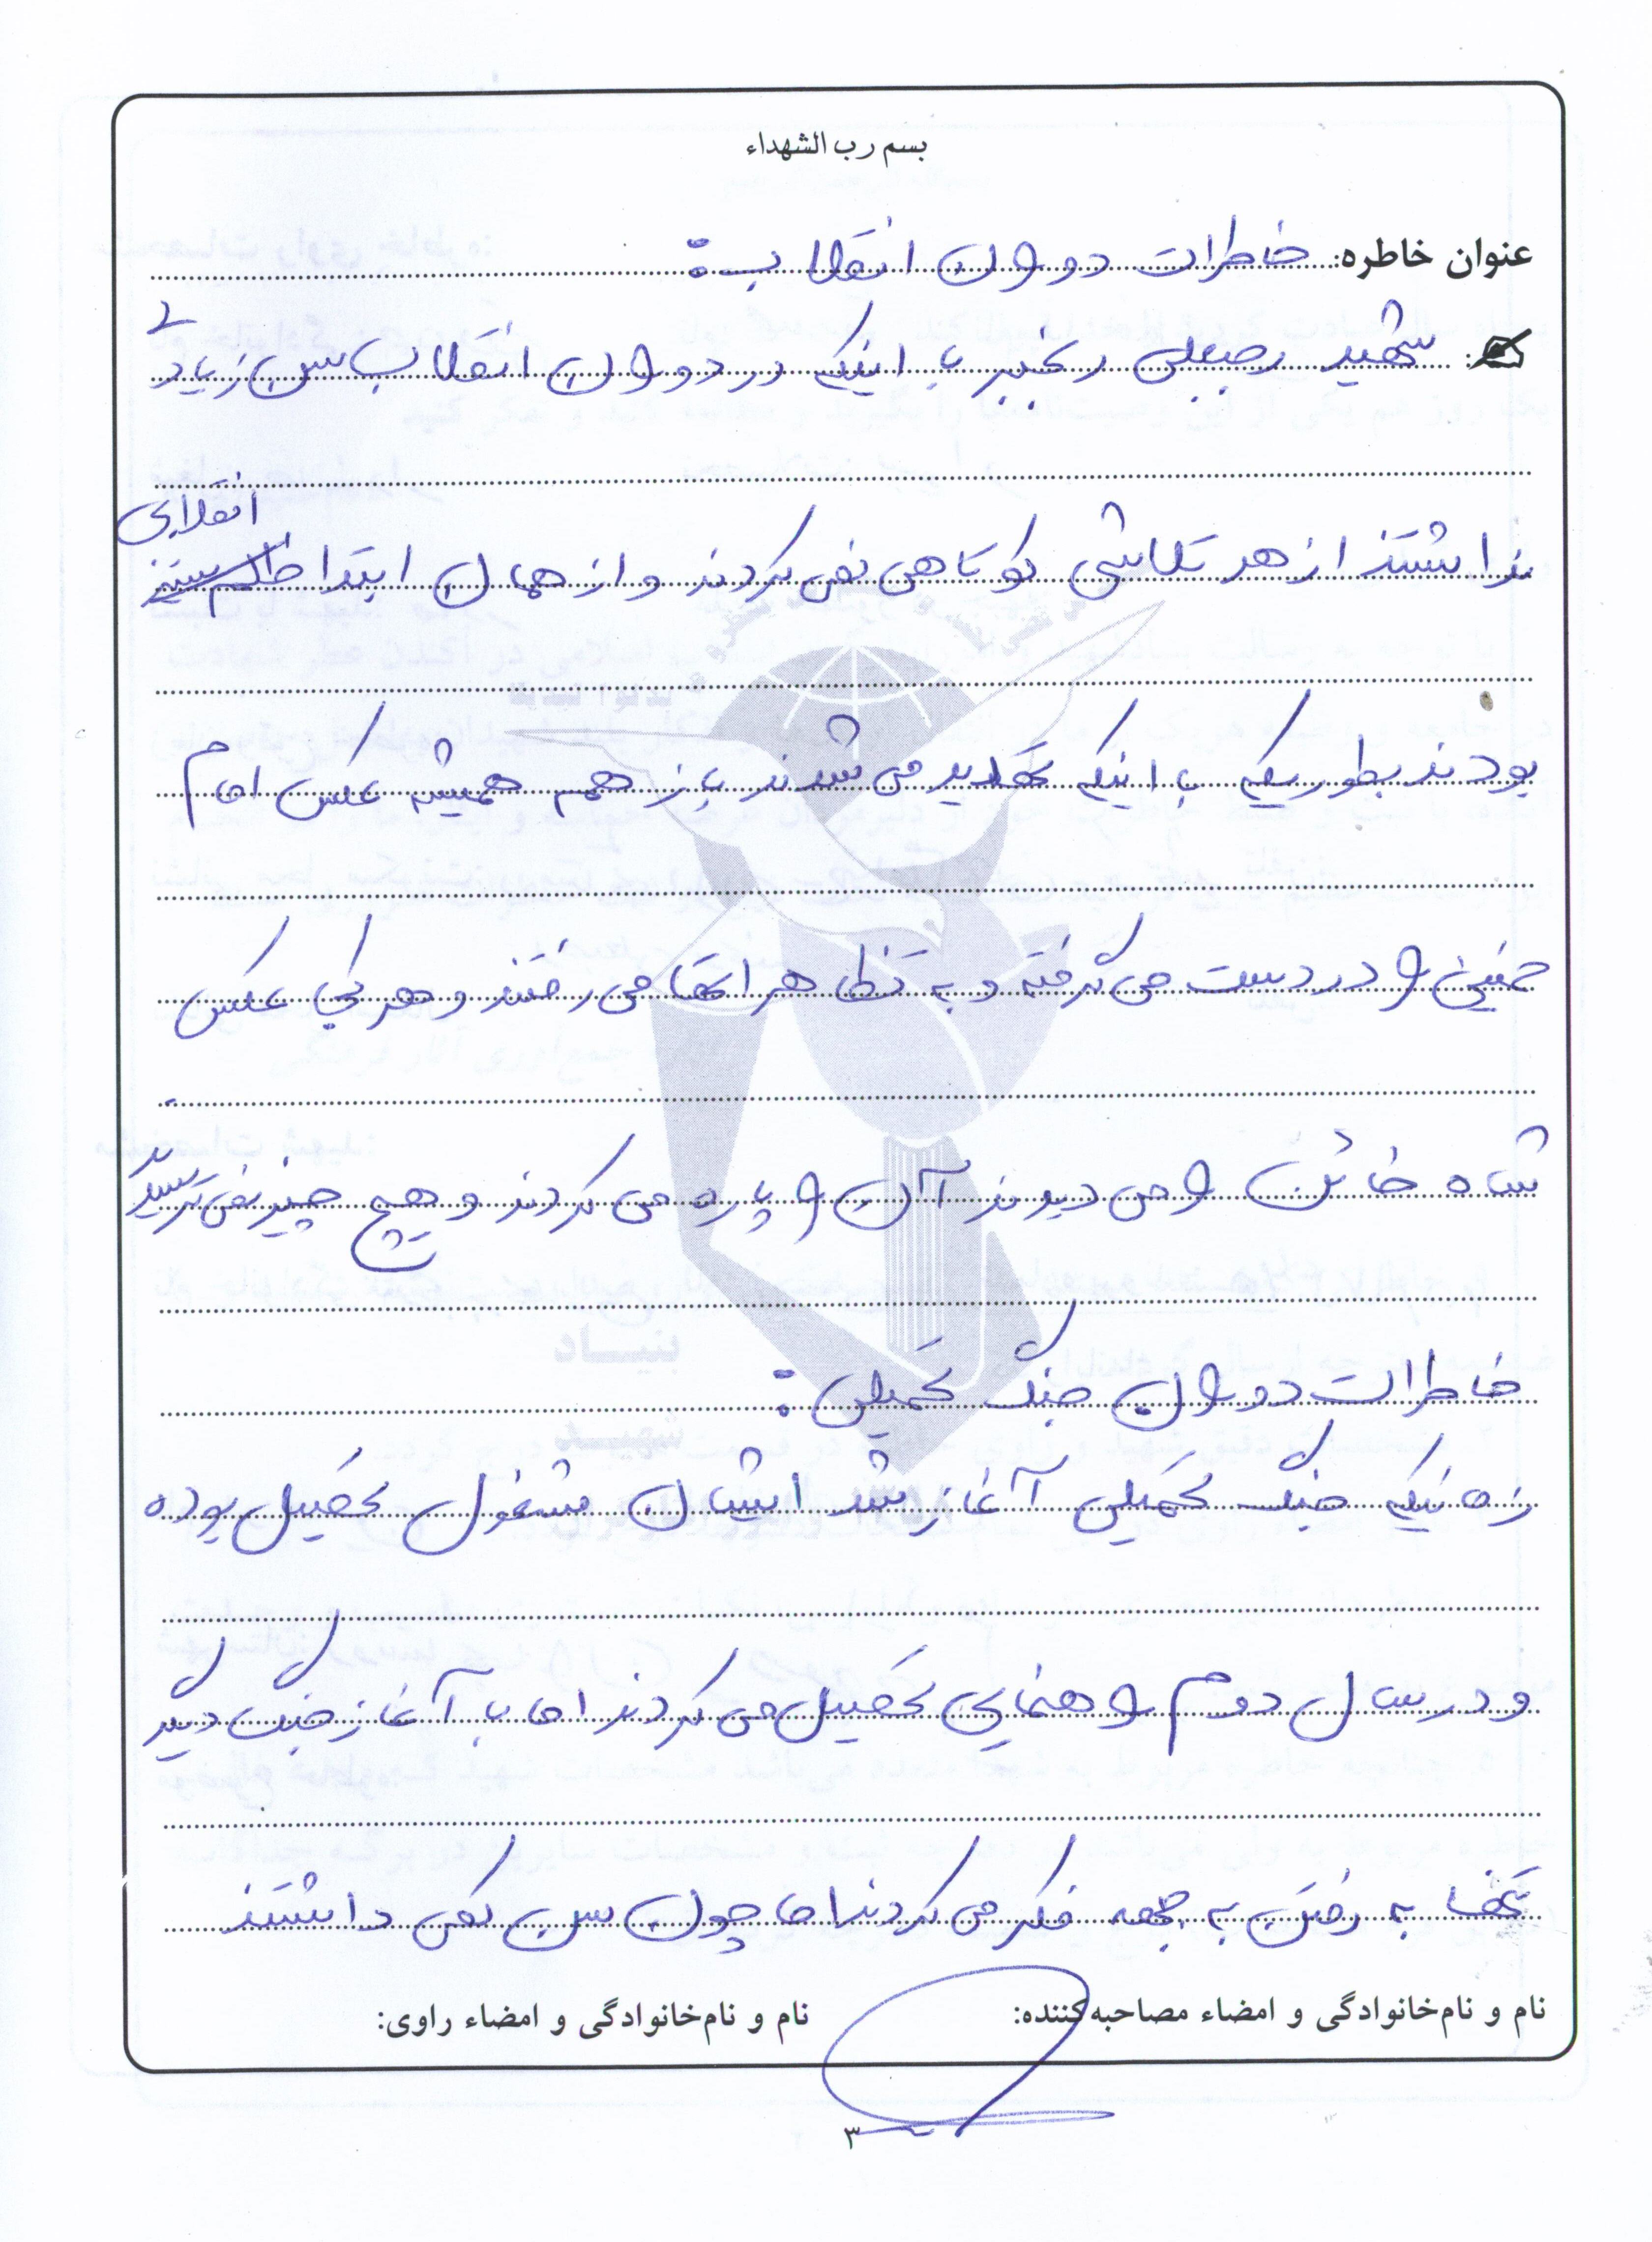 بسم رب الشهداء
عنوان خاطره: خاطرات دوران انقلاب :
شهید رجبعلی رنجبر با اینکه در دوران انقلاب سن زیادی
نداشتند از هر تلاشی کوتاهی نمی کردند و از همان ابتدا انقلابی
بودند بطوریکه با اینکه تهدید می شدند باز هم همیشه عکس امام
خمینی را در دست می گرفته و به تظاهراتها می رفتند و هر کجا عکس
شاه خائن را می دیدند آن را پاره می کردند و از هیچ چیز نمی ترسیدند
خاطرات دوران جنگ تحمیلی :
زمانیکه جنگ تحمیلی آغاز شد ایشان مشغول تحصیل بوده
و در سال دوم راهنمایی تحصیل می کردند اما با آغاز جنگ دیگر
تنها به رفتن به جبهه فکر می کردند اما چون سن کمی داشتند
نام و نام‌خانوادگی و امضاء مصاحبه‌کننده: نام و نام‌خانوادگی و امضاء راوی:
۳